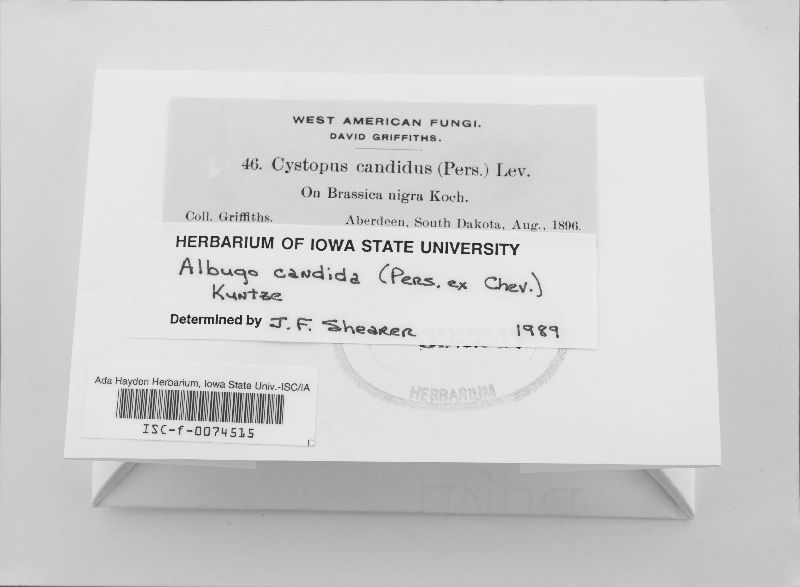 WEST AMERICAN FUNGI.
DAVID GRIFFITHS.
46. Cystopus candidus (Pers.) Lev.
On Brassica nigra Koch.
Coll. Griffiths. Aberdeen, South Dakota, Aug., 1896.
HERBARIUM OF IOWA STATE UNIVERSITY
Albugo candida (Pers. ex Chev.)
Kuntze
Determined by J. F. Shearer 1989
HERBARIUM
Ada Hayden Herbarium, Iowa State Univ.-ISC/IA
ISC-f-0074515